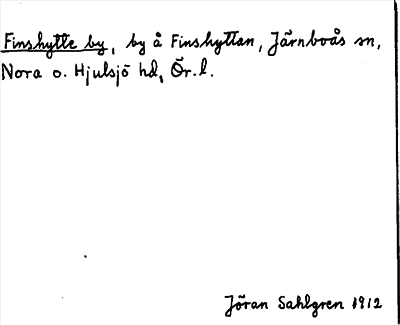 Finshytte by, by å Finshyttan, Järnboås sn,
Nora o. Hjulsjö hd, Ör. l.
Jöran Sahlgren 1912